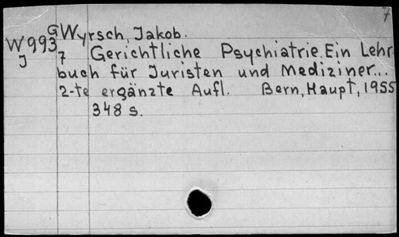 7
G Wyrsch, Jakob.
W993 7 Gerichtliche Psychiatrie. Ein Lehr
J buch für Juristen und Mediziner...
2-te ergänzte Aufl. Bern, Haupt, 1955
348 s.